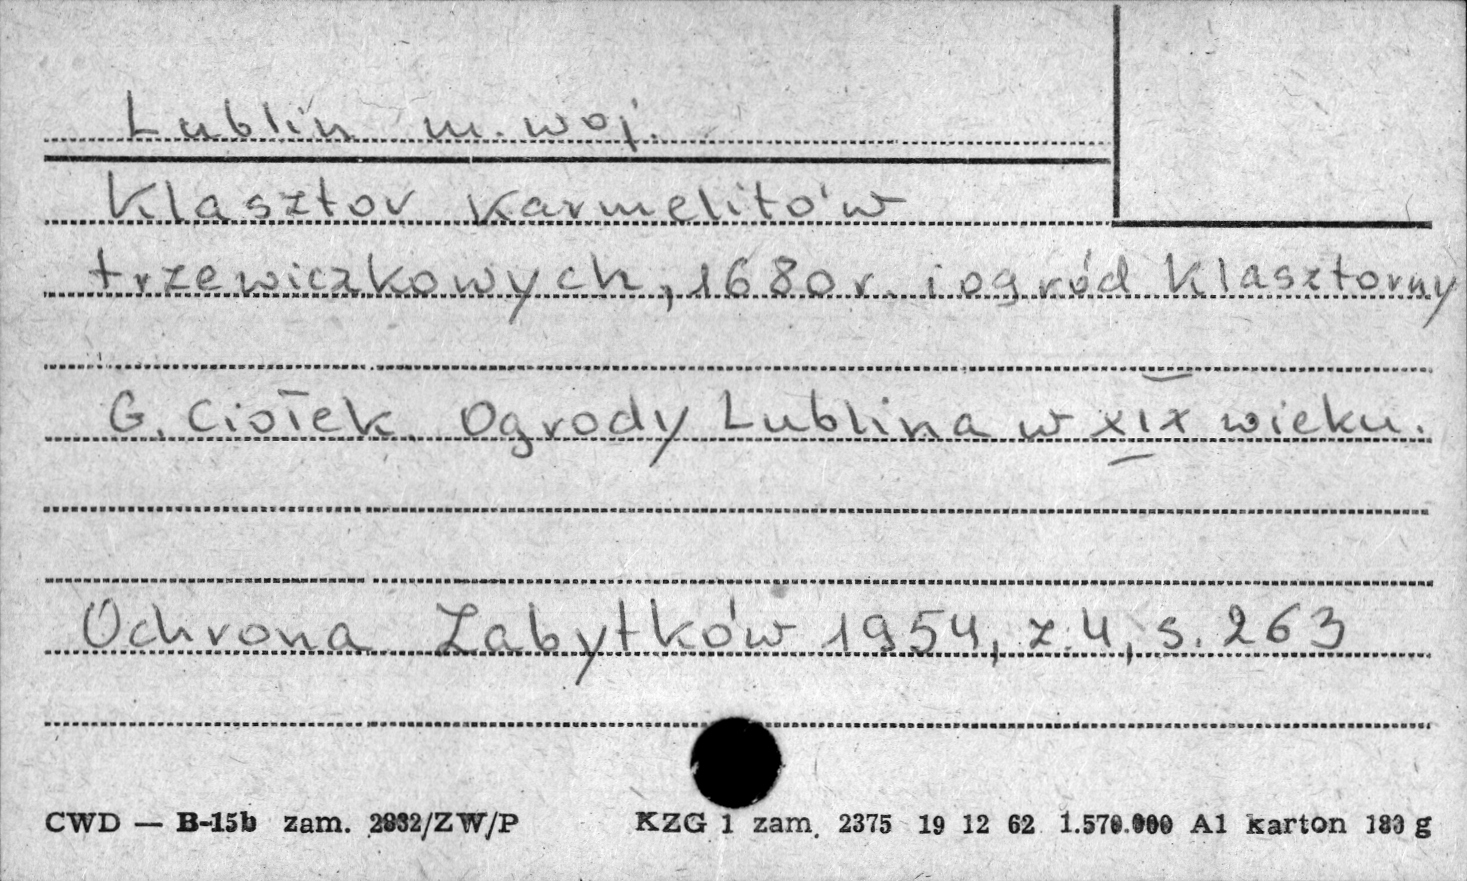 Lublin m. woj.
Klasztor Karmelitów
trzewiczkowych, 1680 r. i ogród Klasztorny
G. Ciołek. Ogrody Lublina w XIX wieku.
Ochrona Zabytków 1954, z. 4, s. 263
CWD — B-15b zam. 2932/ZW/P KZG 1 zam. 2375 19 12 62 1.570.000 A1 karton 180 g